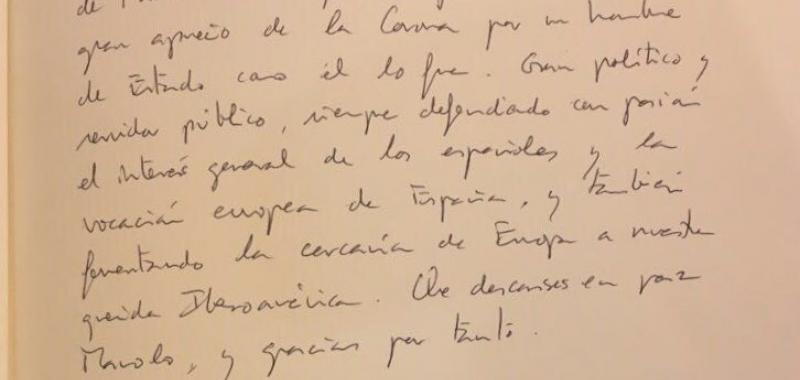 de
gran aprecio de la Corona por un hombre
de Estado como él lo fue. Gran político y
servidor público, siempre defendiendo con pasión
el interés general de los españoles y la
vocación europea de España, y también
fomentando la cercanía de Europa a nuestra
querida Iberoamérica. Que descanses en paz
Manolo, y gracias por tanto.